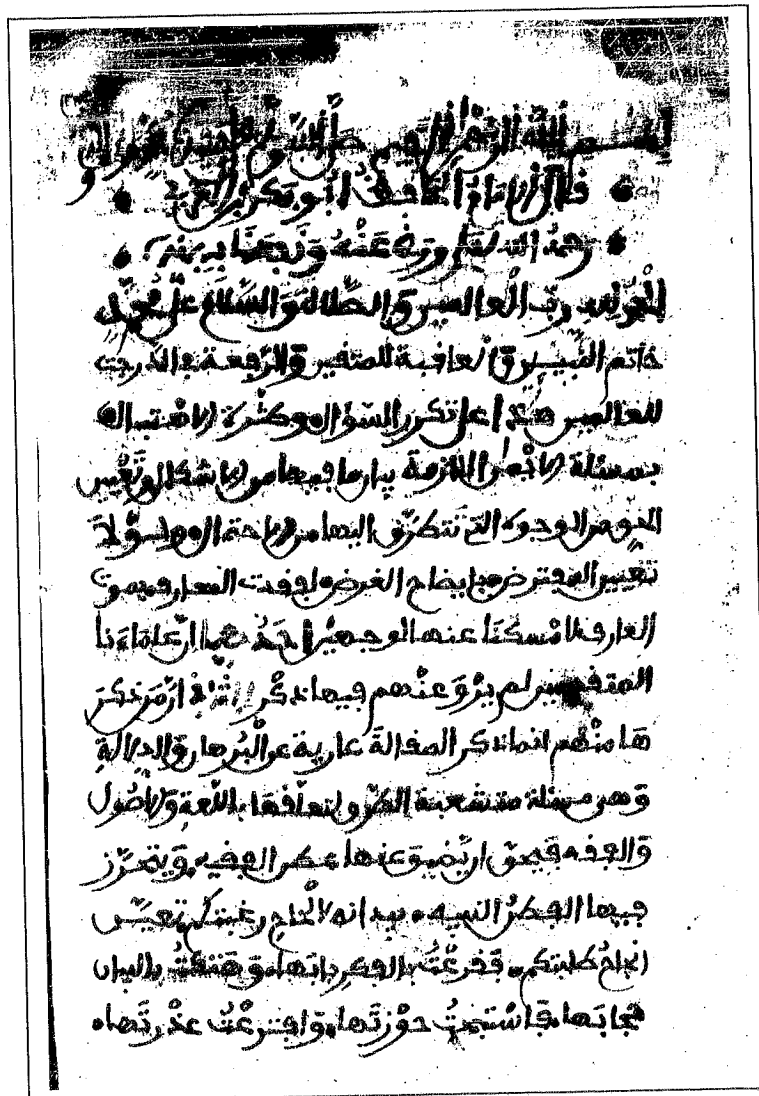 بسم الله الرحمن الرحيم صلى الله على محمد
قال الإمام الحافظ أبو بكر بن العربي
رحمه الله تعالى ورضي عنه ونفعنا به
الحمد لله رب العالمين والصلاة والسلام على محمد
خاتم النبيين والعاقبة للمتقين والرفعة في الدرجت
للعالمين هذا على تكرر السؤال وكثرة الاهتبال
بمسئلة الايمان اللازمة بيان ما فيها من الاشكال وتعيين
الحق من الوجوه التي تتطرق اليها من الاحتمال ولولا
تعيين المفترض بايضاح الغرض
العارف لامسكنا عنها لوجهين احدهما ان علماءنا
المتقدمين لم يرو عنهم فيها ذكر الثاني ان من ذكر
ها منهم انما ذكر المقالة عارية عن البرهان والدلالة
وهي مسئلة متشعبة الطرق لتعلقها باللغة والاصول
والفقه فيحق ان يضيق عنها عطن الفقيه ويتحرز
فيها الفطن النبيه بيد انه لالحاح رغبتكم تعين
انجاح طلبتكم فقرعت بالفكر بابها وهتكت بالبيان
حجابها فاستبحت حوزتها وافترعت عذرتها